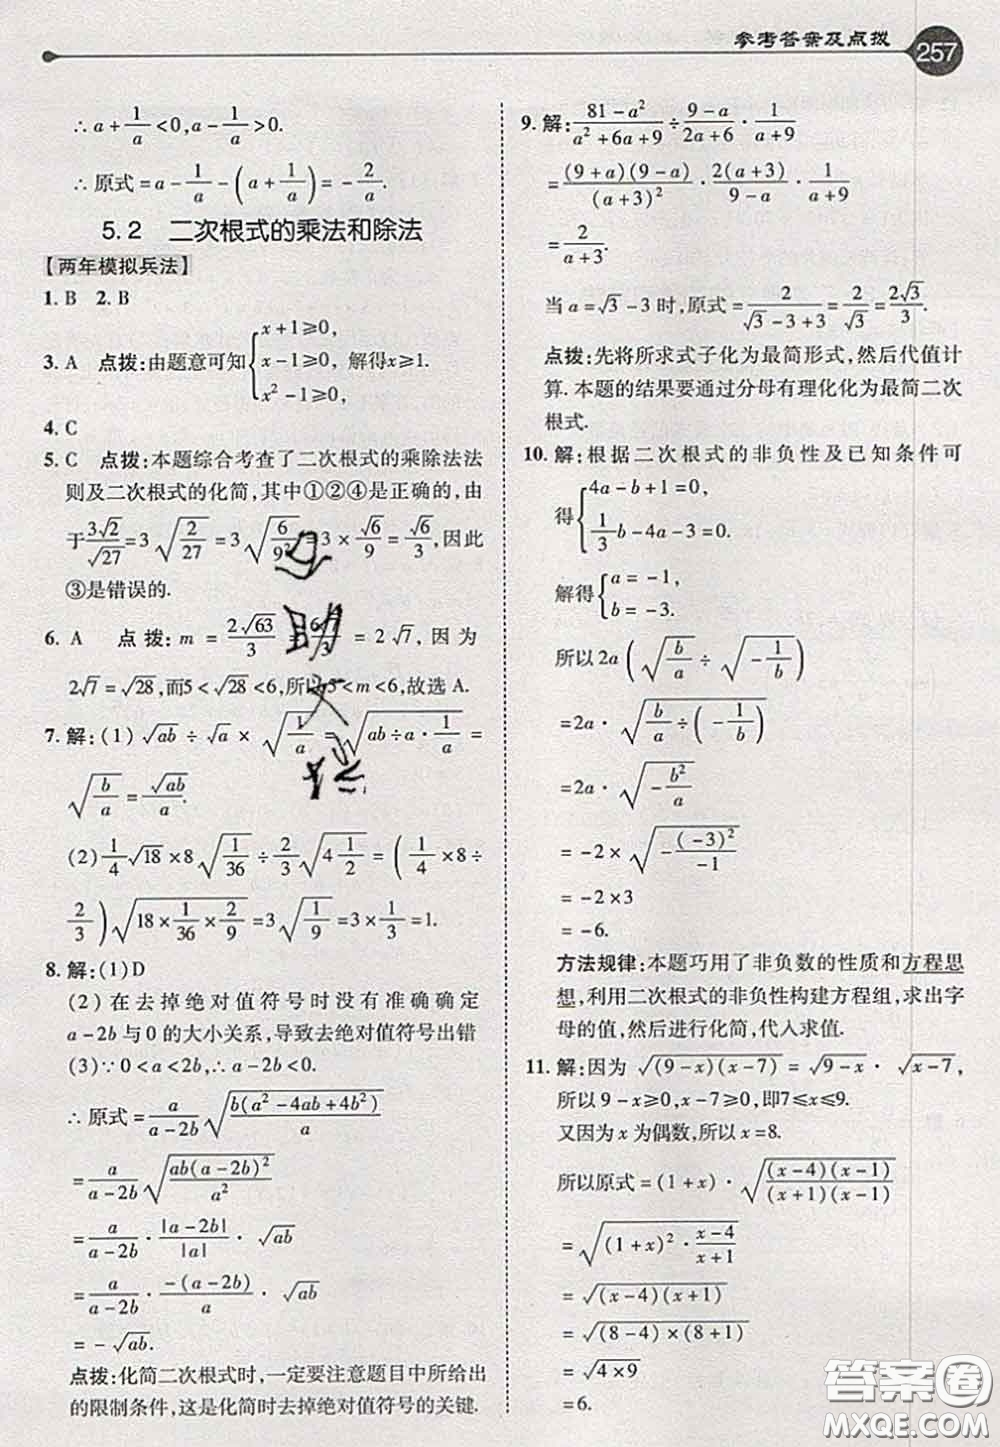 参考答案及点拨 257
∴a+1/a<0,a-1/a>0.
∴原式=a-1/a-(a+1/a)=-2/a.
5.2 二次根式的乘法和除法
【两年模拟兵法】
1. B 2. B
3. A 点拨:由题意可知{x+1≥0, x-1≥0, x²-1≥0, 解得x≥1.
4. C
5. C 点拨:本题综合考查了二次根式的乘除法法
则及二次根式的化简,其中①②④是正确的,由
于3√2/√27=3√(2/27)=3√(6/9²)=3×√6/9=√6/3,因此
③是错误的.
6. A 点拨:m=2√63/3=6√7/3=2√7,因为
2√7=√28,而5<√28<6,所以5<m<6,故选 A.
7. 解:(1)√ab÷√a×√(1/a)=√(ab÷a·1/a)=
√(b/a)=√ab/a.
(2)1/4√18×8√(1/36)÷2/3√(4 1/2)=(1/4×8÷
2/3)√(18×1/36×2/9)=3√(1/9)=3×1/3=1.
8. 解:(1)D
(2)在去掉绝对值符号时没有准确确定
a-2b与0的大小关系,导致去绝对值符号出错
(3)∵0<a<2b,∴a-2b<0.
∴原式=a/(a-2b)√(b(a²-4ab+4b²)/a)
=a/(a-2b)√(ab(a-2b)²/a²)
=a/(a-2b)·|a-2b|/|a|·√ab
=a/(a-2b)·-(a-2b)/a·√ab
=-√ab.
点拨:化简二次根式时,一定要注意题目中所给出
的限制条件,这是化简时去掉绝对值符号的关键.
9. 解:(81-a²)/(a²+6a+9)÷(9-a)/(2a+6)·1/(a+9)
=(9+a)(9-a)/(a+3)²·2(a+3)/(9-a)·1/(a+9)
=2/(a+3).
当a=√3-3时,原式=2/(√3-3+3)=2/√3=2√3/3.
点拨:先将所求式子化为最简形式,然后代值计
算.本题的结果要通过分母有理化化为最简二次
根式.
10. 解:根据二次根式的非负性及已知条件可
得{4a-b+1=0, 1/3b-4a-3=0.
解得{a=-1, b=-3.
所以2a(√(b/a)÷√(-1/b))
=2a·√(b/a÷(-1/b))
=2a·√(-b²/a)
=-2×√(-(-3)²/-1)
=-2×3
=-6.
方法规律:本题巧用了非负数的性质和方程思
想,利用二次根式的非负性构建方程组,求出字
母的值,然后进行化简,代入求值.
11. 解:因为√((9-x)(x-7))=√(9-x)·√(x-7),
所以9-x≥0,x-7≥0,即7≤x≤9.
又因为x为偶数,所以x=8.
所以原式=(1+x)·√((x-4)(x-1)/(x+1)(x-1))
=√((1+x)²·(x-4)/(x+1))
=√((x-4)(x+1))
=√((8-4)×(8+1))
=√(4×9)
=6.
答案圈
MXQE.COM